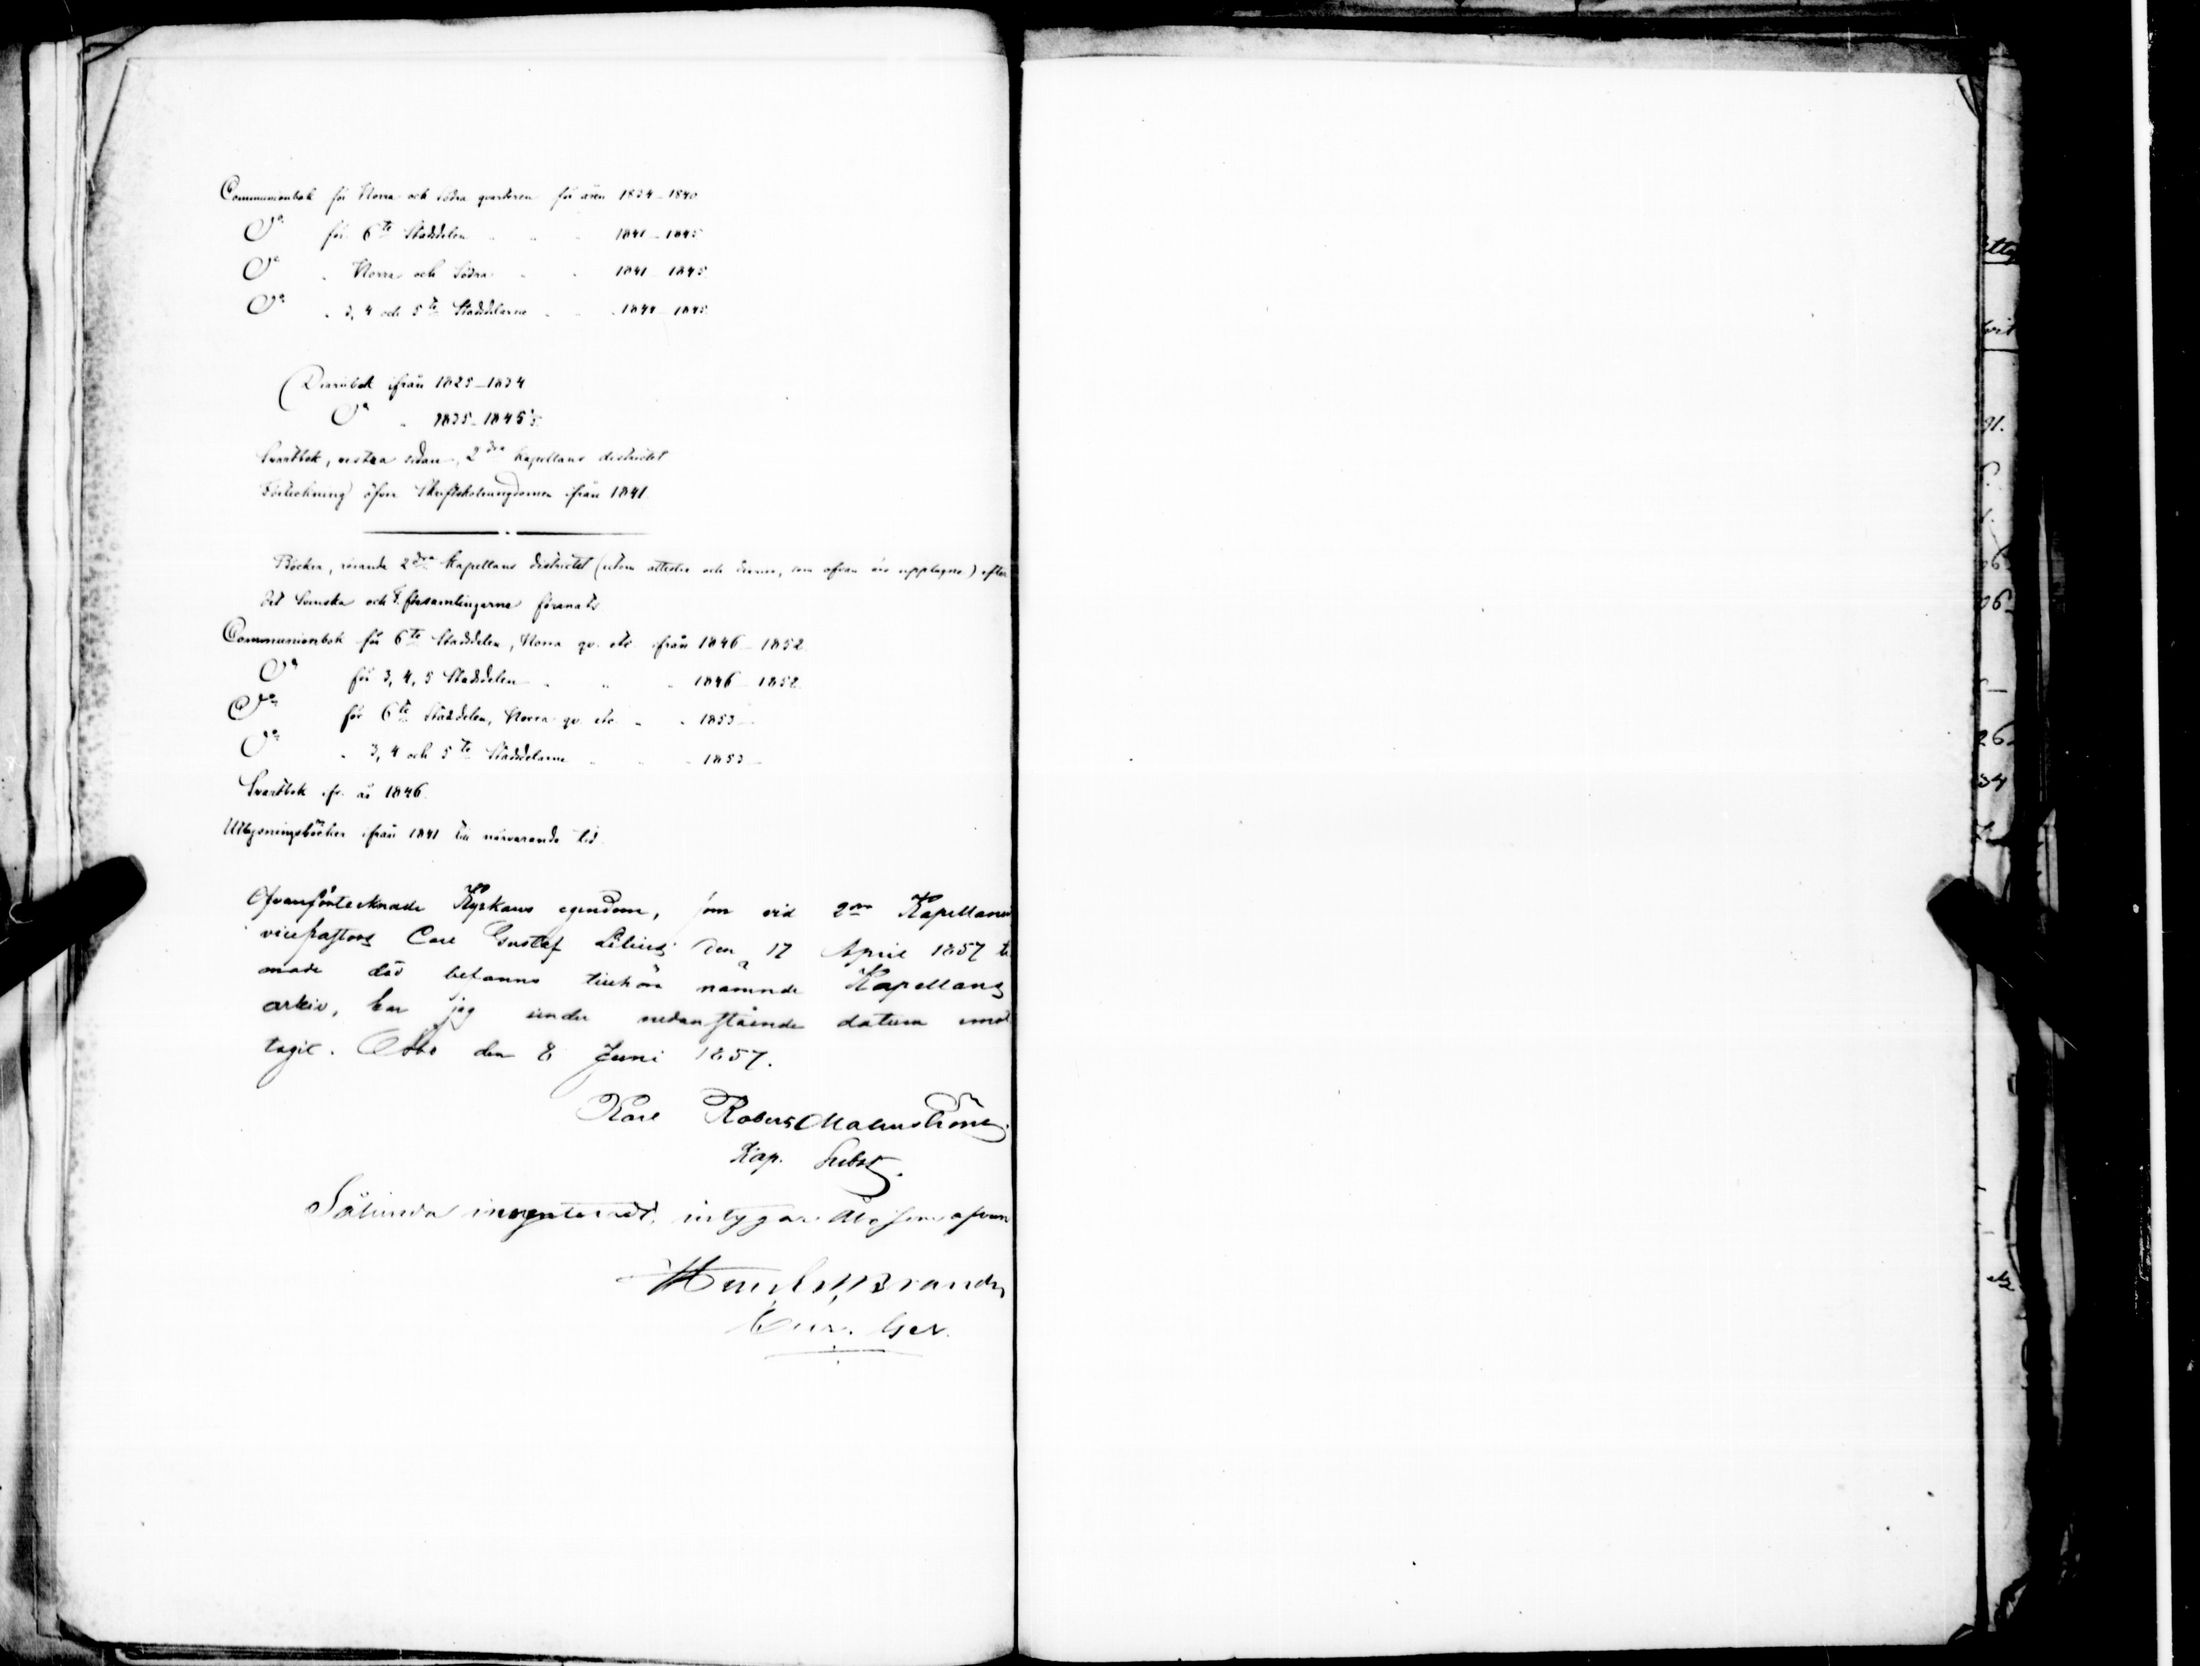 Communionbok för Norra och Södra qvarteren för åren 1834-1840
Do för 6te Stadsdelen " " " 1841-1845
Do " Norra och Södra " " 1841-1845
Do " 3, 4 och 5te Stadsdelarne " " 1841-1845
Diariibok ifrån 1825-1834
Do " 1835-1845
Svartbok, vestra sidan, 2dra Kapellans districtet
Förteckning öfver Skriftskoleungdomen ifrån 1841.
Böcker, rörande 2dra Kapellans districtet (utom attester och, som ofvan äro upptagne) efter
det Svenska och F. församlingarne förenats.
Communionbok för 6te Stadsdelen, Norra qv. etc. ifrån 1846-1852.
Do för 3, 4, 5 Stadsdelen " " " 1846-1852.
Do för 6te Stadsdelen, Norra qv. etc. " " 1853-
Do " 3, 4 och 5te Stadsdelarne " " " 1853-
Svartbok ifr. år 1846.
Utlysningsböcker ifrån 1841 till närvarande tid.
Ofvanförtecknade Kyrkans egendom, som vid 2dra Kapellanen
vicepastors Carl Gustaf den 17 April 1857 ti-
made död befanns tillhöra nämnde Kapellans
arkiv, har jag under nedanstående datum emot
tagit. Åbo den 8 Juni 1857.
Karl Robert Malmström.
Kap. Subst.
Sålunda inventeradt, intygar Åbo som ofvan
Brander